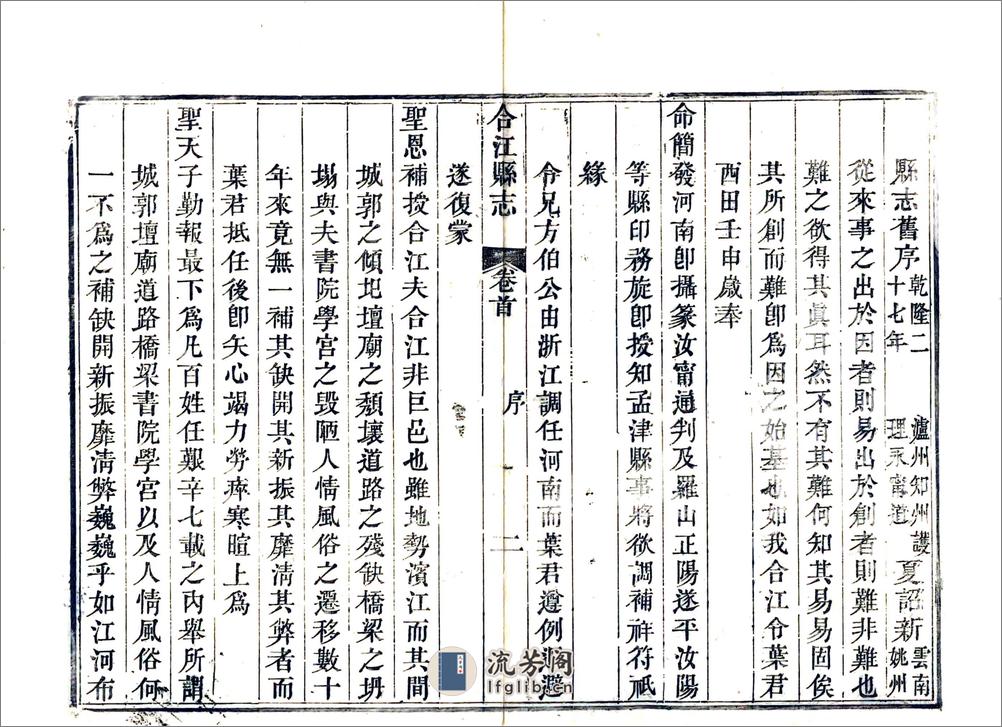 縣志舊序 乾隆二十七年 瀘州知州護理永甯道 夏詔新 雲南姚州
從來事之出於因者則易出於創者則難非難也
難之欲得其眞耳然不有其難何知其易易固俟
其所創而難卽爲因之始基也如我合江令葉君
西田壬申歲奉
命簡發河南卽攝篆汝甯通判及羅山正陽遂平汝陽
等縣印務旋卽授知孟津縣事將欲調補祥符祇
緣
令兄方伯公由浙江調任河南而葉君遵例避
合江縣志 卷首 序 二
遂復蒙
聖恩補授合江夫合江非巨邑也雖地勢濱江而其間
城郭之傾圯壇廟之頽壞道路之殘缺橋梁之坍
塌與夫書院學宮之毀陋人情風俗之遷移數十
年來竟無一補其缺開其新振其靡清其弊者而
葉君抵任後卽矢心竭力勞瘁寒暄上爲
聖天子勤報最下爲凡百姓任艱辛七載之內舉所謂
城郭壇廟道路橋梁書院學宮以及人情風俗何
一不爲之補缺開新振靡清弊巍巍乎如江河布
流芳閣
lfglib.cn